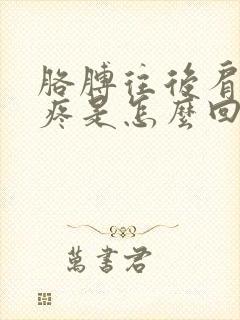 胳膊往後肩
疼是怎麽回
萬書君